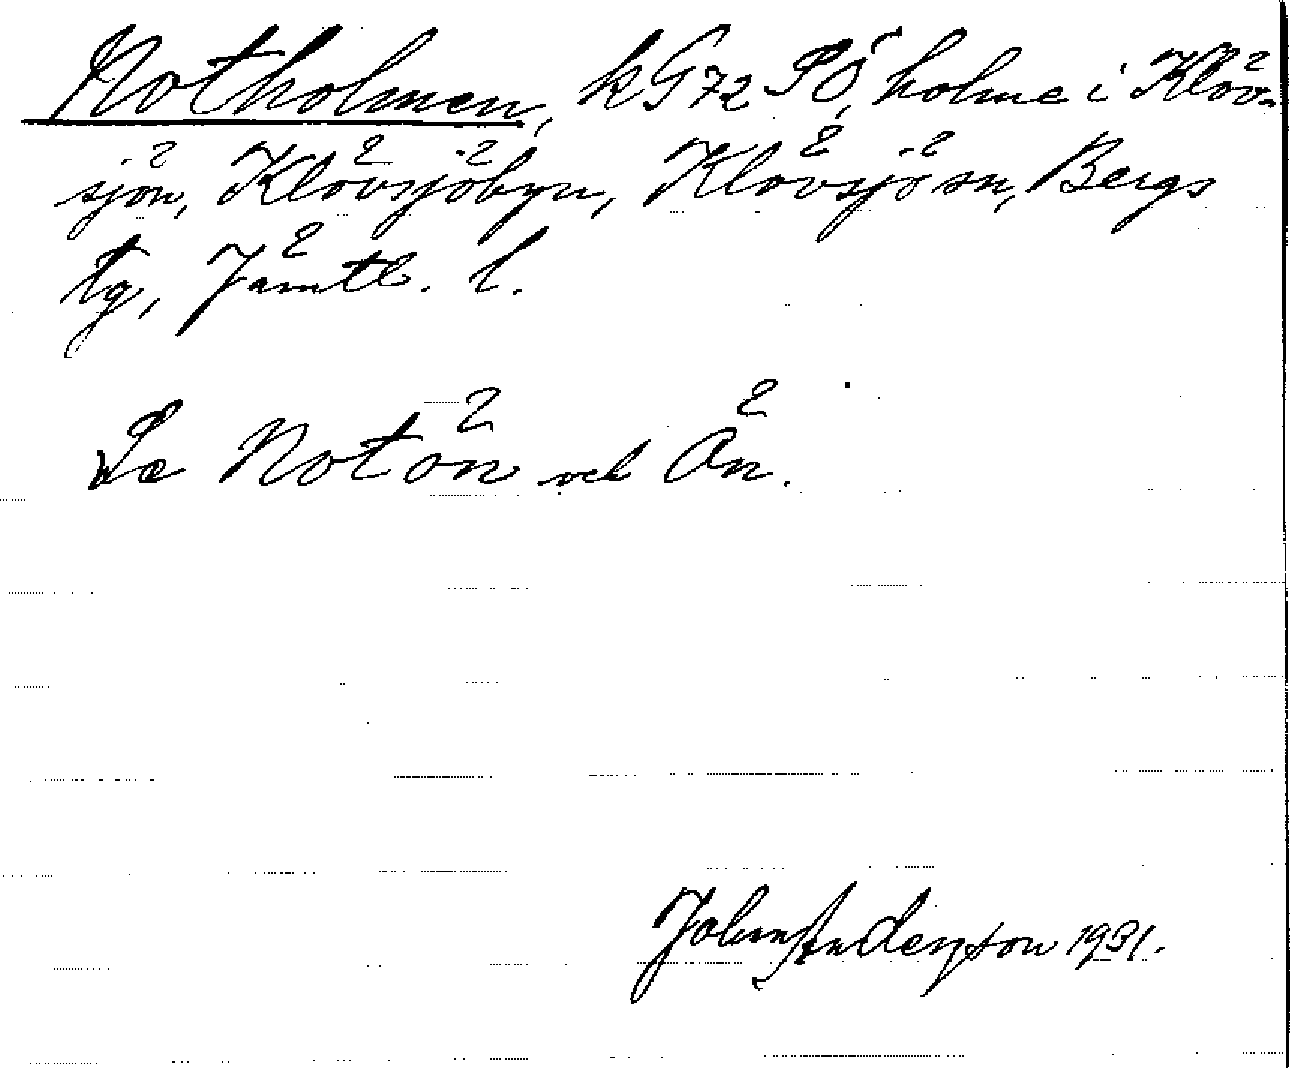 Notholmen, kG72 SÖ, holme i Klöv-
sjön, Klövsjöbyn, Klövsjö sn, Bergs
tg, Jämtl. l.
Se Notön och Ån.
John Andersson 1931.